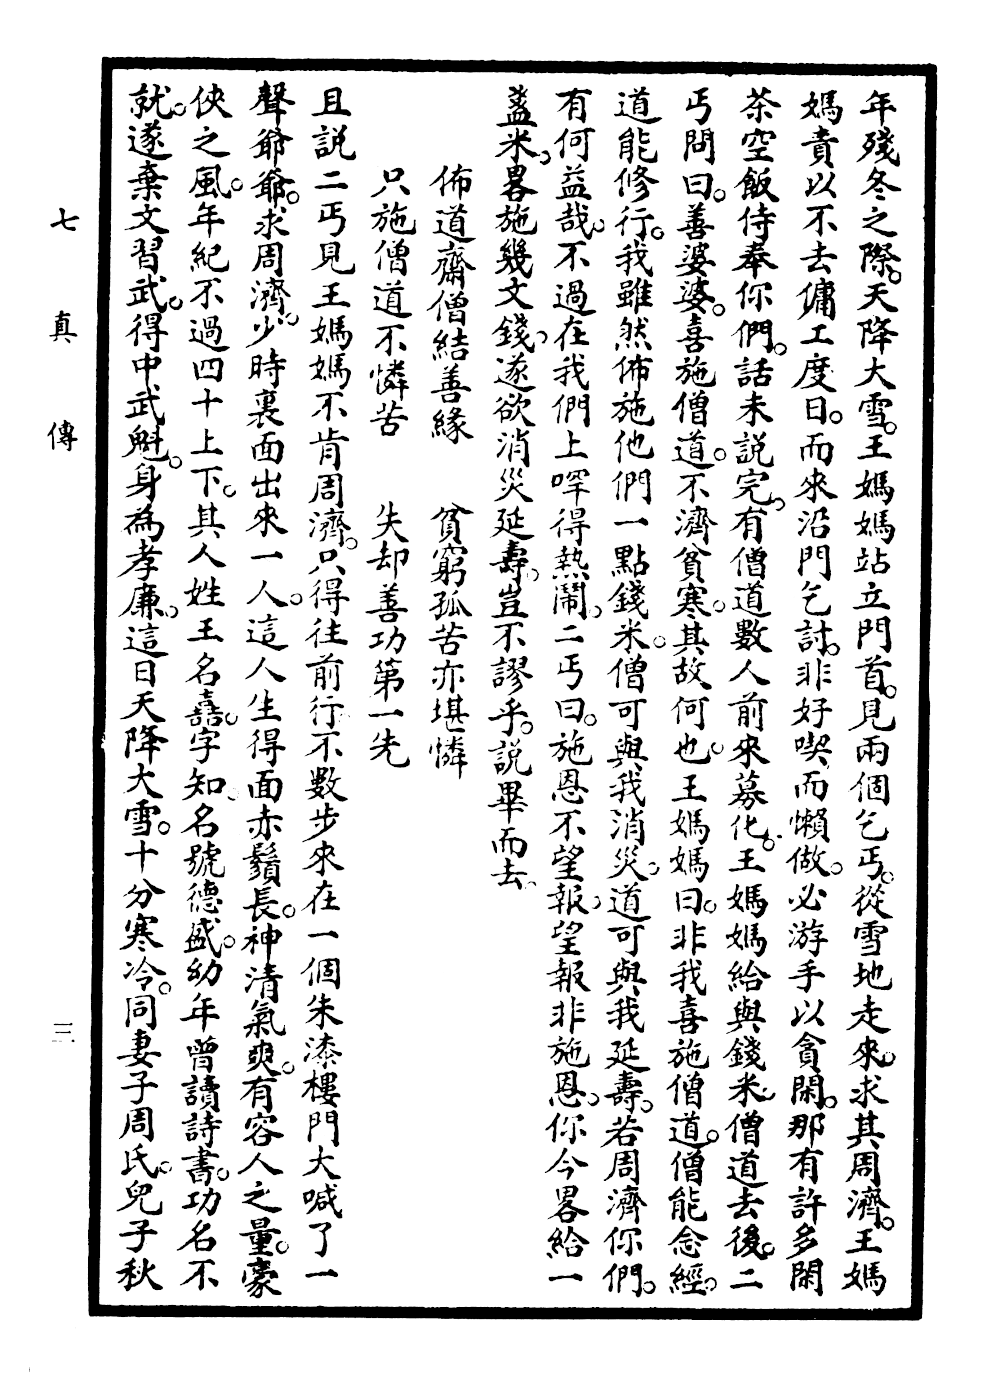 年殘冬之際。天降大雪。王媽媽站立門首。見兩個乞丐。從雪地走來。求其周濟。王媽
媽責以不去傭工度日。而來沿門乞討。非好喫而懶做。必游手以貪閑。那有許多閑
茶空飯侍奉你們。話未說完。有僧道數人前來募化。王媽媽給與錢米。僧道去後。二
丐問曰。善婆婆。喜施僧道。不濟貧寒。其故何也。王媽媽曰。非我喜施僧道。僧能念經。
道能修行。我雖然佈施他們一點錢米。僧可與我消災。道可與我延壽。若周濟你們。
有何益哉。不過在我們上啅得熱鬧。二丐曰。施恩不望報。望報非施恩。你今畧給一
盞米。畧施幾文錢。遂欲消災延壽。豈不謬乎。說畢而去。
佈道齋僧結善緣　貧窮孤苦亦堪憐
只施僧道不憐苦　失却善功第一先
且說二丐見王媽媽不肯周濟。只得往前行。不數步來在一個朱漆樓門大喊了一
聲爺爺。求周濟。少時裏面出來一人。這人生得面赤鬚長。神清氣爽。有容人之量。豪
俠之風。年紀不過四十上下。其人姓王名嚞。字知名號德盛。幼年曾讀詩書。功名不
就。遂棄文習武。得中武魁。身為孝廉。這日天降大雪。十分寒冷。同妻子周氏。兒子秋
七真傳
三